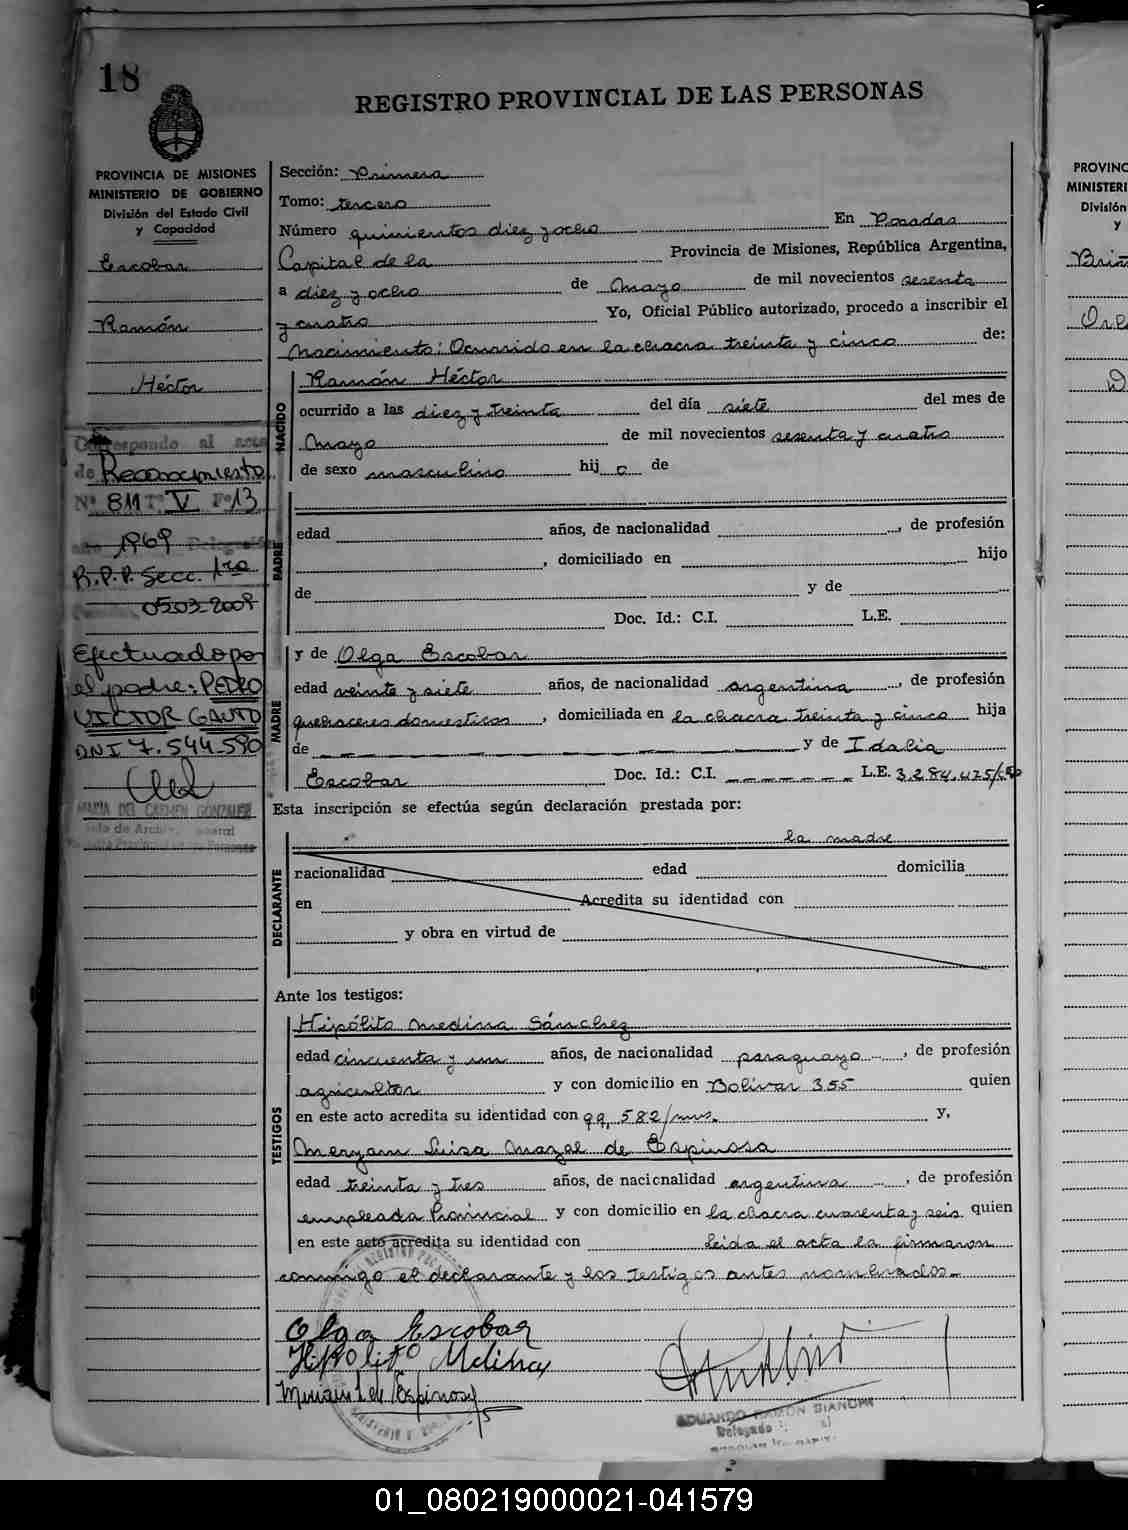 18
REGISTRO PROVINCIAL DE LAS PERSONAS
PROVINCIA DE MISIONES
MINISTERIO DE GOBIERNO
División del Estado Civil
y Capacidad
Escobar
Ramón
Héctor
Corresponde al acta
de Reconocimiento
Nº 811 Tº V Fº 13
año 1969 Delegación
R.P.P. Secc. 1ra
05-03-2009
Efectuado por
el padre: PEDRO
VICTOR GAUTO
DNI 7.544.590
MARIA DEL CARMEN GONZALEZ
Sección: Primera
Tomo: tercero
Número quinientos diez y ocho En Posadas
Capital de la Provincia de Misiones, República Argentina,
a diez y ocho de Mayo de mil novecientos sesenta
y cuatro Yo, Oficial Público autorizado, procedo a inscribir el
Nacimiento: Ocurrido en la chacra treinta y cinco de:
NACIDO
Ramón Héctor
ocurrido a las diez y treinta del día siete del mes de
Mayo de mil novecientos sesenta y cuatro
de sexo masculino hij o de
PADRE
edad años, de nacionalidad , de profesión
, domiciliado en hijo
de y de
Doc. Id.: C.I. L.E.
MADRE
y de Olga Escobar
edad veinte y siete años, de nacionalidad argentina , de profesión
quehaceres domesticos , domiciliada en la chacra treinta y cinco hija
de — — — — — — — — y de Idalia
Escobar Doc. Id.: C.I. — — — — — — L.E. 3.284.475/
Esta inscripción se efectúa según declaración prestada por:
DECLARANTE
la madre
nacionalidad edad domicilia
en Acredita su identidad con
y obra en virtud de
Ante los testigos:
TESTIGOS
Hipólito Medina Sánchez
edad cincuenta y un años, de nacionalidad paraguayo , de profesión
agricultor y con domicilio en Bolivar 355 quien
en este acto acredita su identidad con 99.582/mns. y,
Meryam Luisa Mazal de Espinosa
edad treinta y tres años, de nacionalidad argentina , de profesión
empleada Provincial y con domicilio en la chacra cuarenta y seis quien
en este acto acredita su identidad con leida el acta la firmaron
conmigo el declarante y los testigos antes nombrados.-
Olga Escobar
Hipolito Medina
Miriam L de Espinosa
EDUARDO RAMON BIANCHI
Delegado
PROVINC
MINISTERI
División
y
01_080219000021-041579